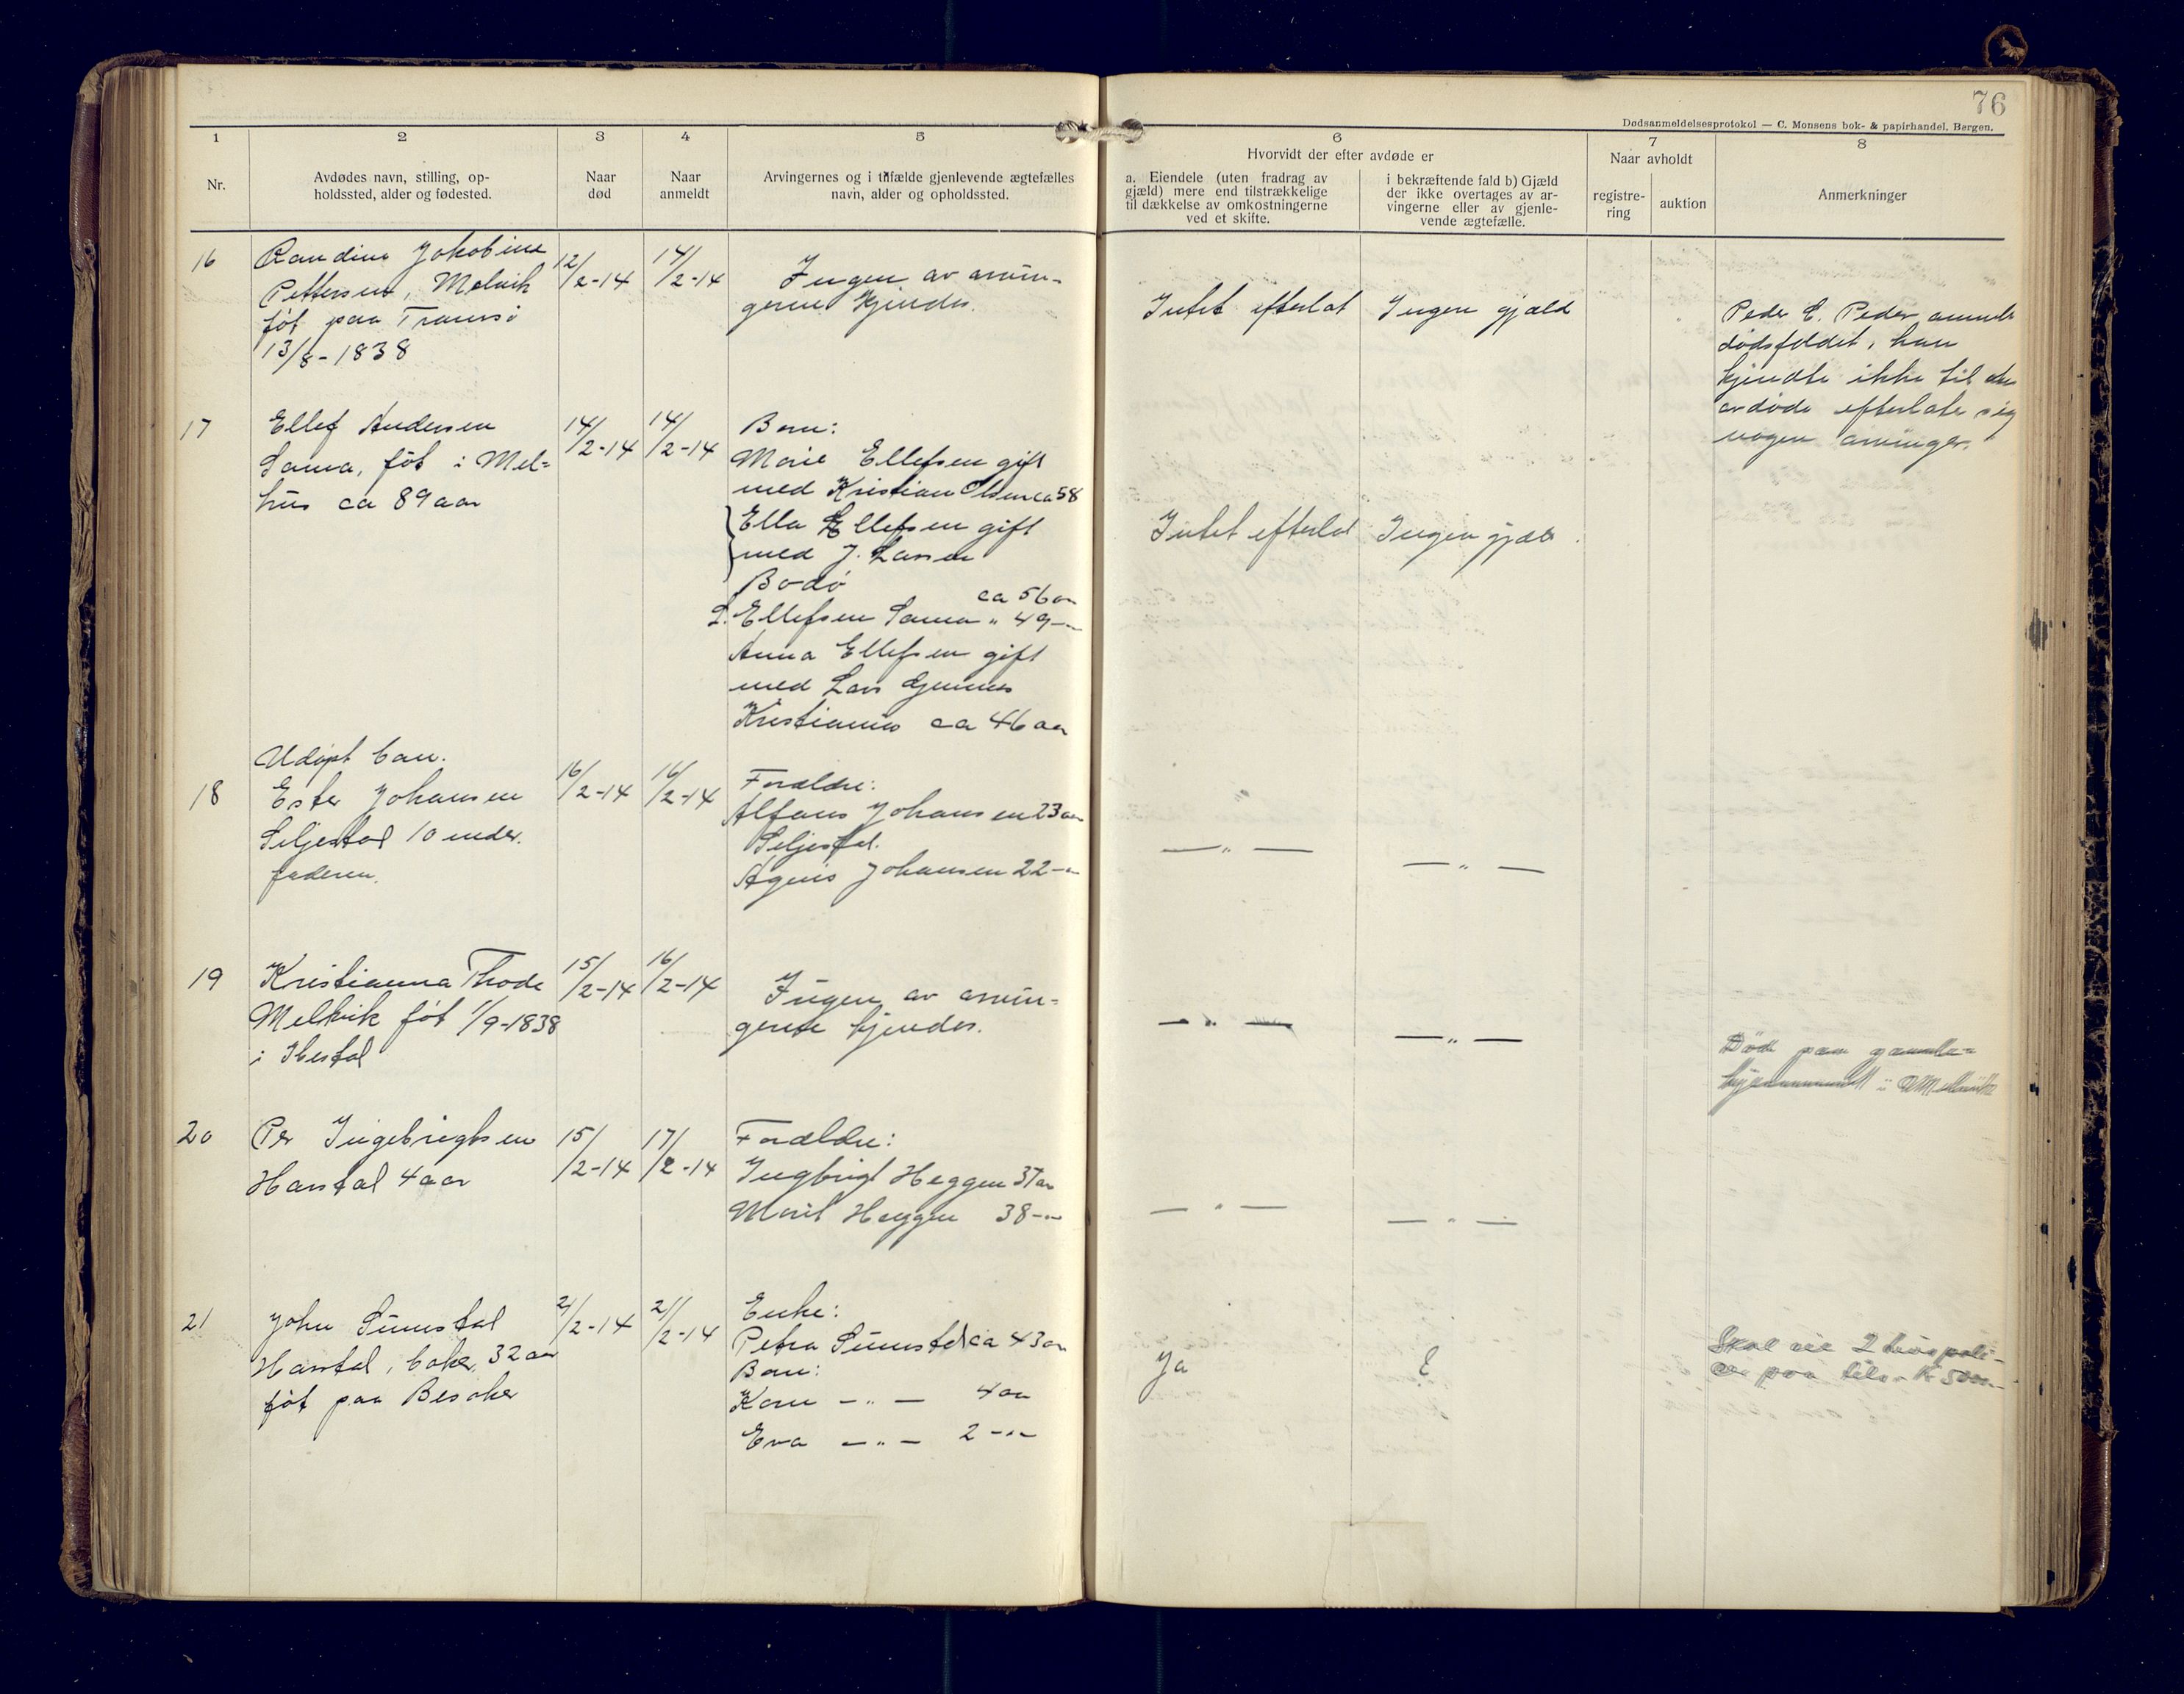 76
Dødsanmeldelsesprotokol — C. Monsens bok- & papirhandel, Bergen.
1 2 3 4 5 6 7 8
Nr.
Avdødes navn, stilling, op-
holdssted, alder og fødested.
Naar
død
Naar
anmeldt
Arvingernes og i tilfælde gjenlevende ægtefælles
navn, alder og opholdssted.
Hvorvidt der efter avdøde er
a. Eiendele (uten fradrag av
gjæld) mere end tilstrækkelige
til dækkelse av omkostningerne
ved et skifte.
i bekræftende fald b) Gjæld
der ikke overtages av ar-
vingerne eller av gjenle-
vende ægtefælle.
Naar avholdt
registre-
ring
auktion
Anmerkninger
16
Randine Jakobine
Pettersen, Melvik
føt paa Tromsö
13/8-1838
12/2-14
14/2-14
Ingen av arvin-
gerne kjendes.
Intet efterlat
Ingen gjæld
Peder E. Peder anmeldt
dødsfaldet, han
kjendte ikke til at
avdøde efterlate sig
nogen arvinger.
17
Ellef Andersen
Sama, föt i Mel-
hus ca 89 aar
14/2-14
14/2-14
Barn:
Marie Ellefsen gift
med Kristian Olsen ca 58
Ella Ellefsen gift
med J. Larsen
Bodö
ca 56 aar
L. Ellefsen Sama " 49-"-
Anna Ellefsen gift
med Lars
Kristiania ca 46 aar
Intet efterlat
Ingen gjæld.
18
Udöpt barn.
Ester Johansen
Seljestad 10 mdr.
faderen.
16/2-14
16/2-14
Forældre:
Alfons Johansen 23 aar
Seljestad.
Agnes Johansen 22-"-
— " —
— " —
19
Kristianna Thode
Melvik föt 1/9-1838
i Ibestad
15/2-14
16/2-14
Ingen av arvin-
gerne kjendes.
— " —
— " —
Död paa gamle-
hjemmet i Melvik
20
Per Ingebrigtsen
Harstad 4 aar
15/2-14
17/2-14
Forældre:
Ingbrigt Heggen 37 aar
Marit Heggen 38-"-
— " —
— " —
21
John Sumstad
Harstad, baker, 32 aar
föt paa Besaker
21/2-14
21/2-14
Enke:
Petra Sumstad ca 43 aar
Barn:
Kare — " — 4 aar
Eva — " — 2-"-
Ja
Skal eie 2 livspoli-
cer paa tils. K 5000.-